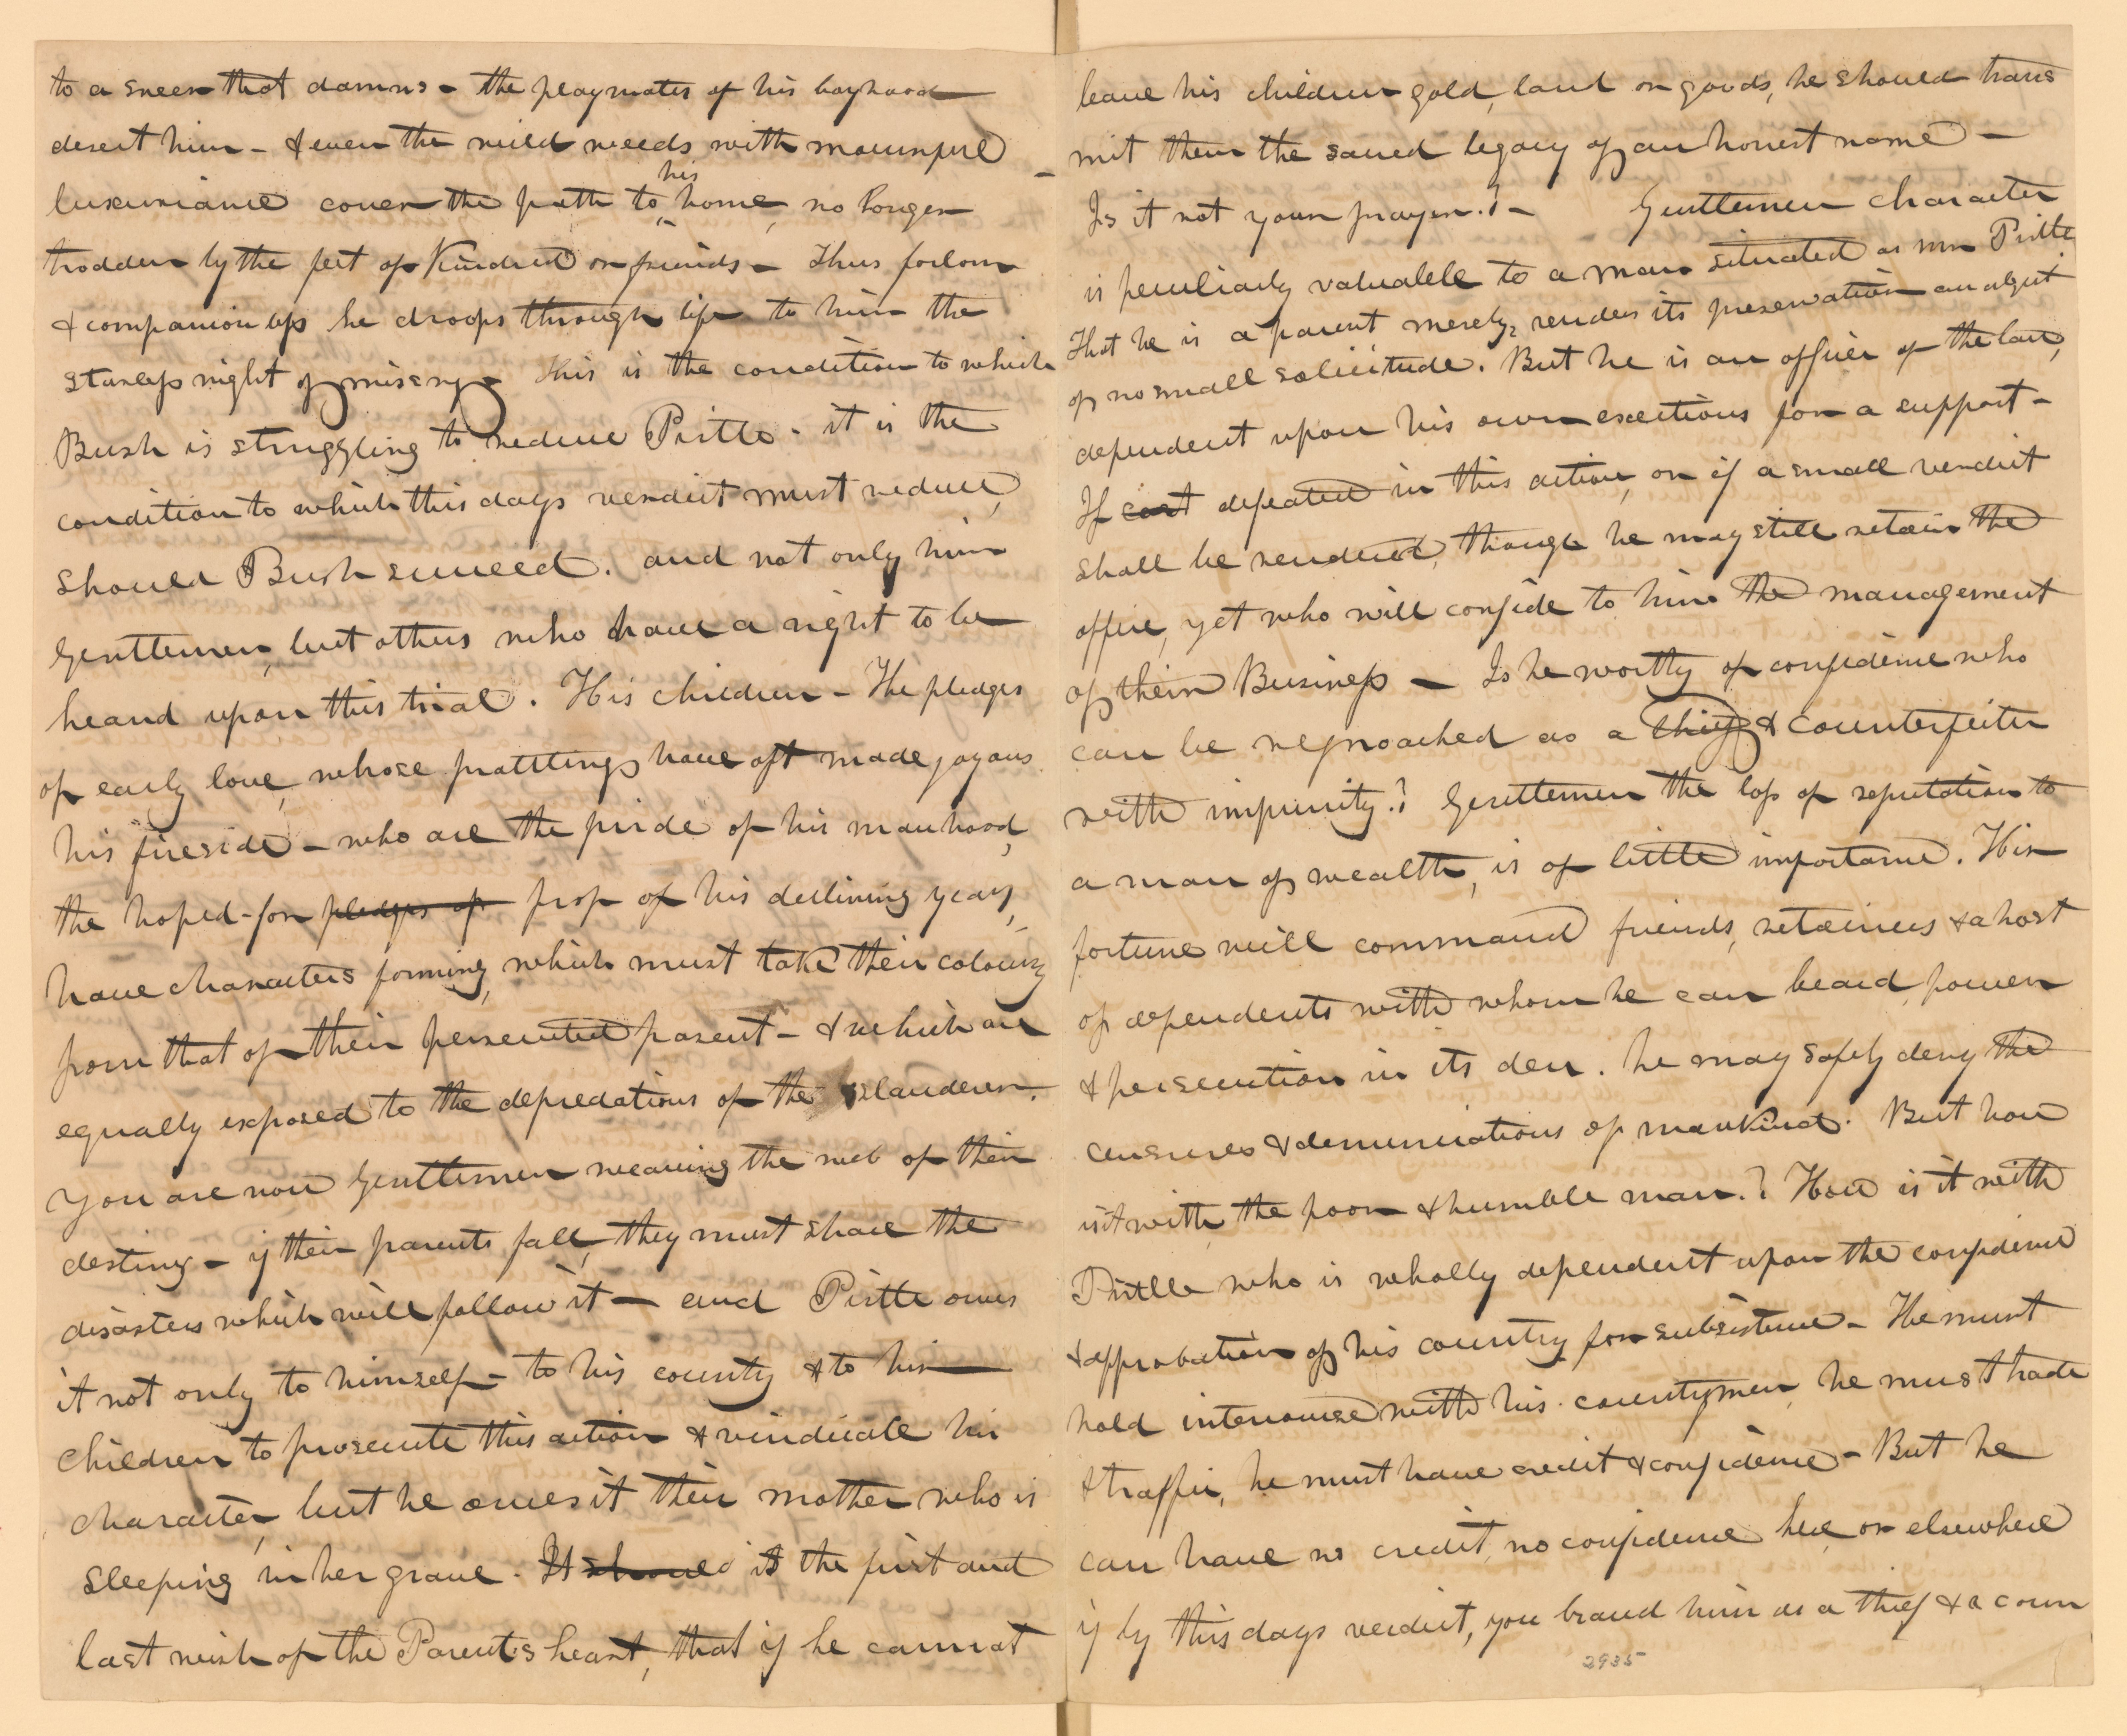 to a sneer that damns - the playmates of his boyhood
desert him - & even the mild weeds with mournful
luxuriance cover the path to his home, no longer
trodden by the feet of Kindred or friends - Thus forlorn
& companionless he droops through life to him the
starless night of misery - This is the condition to which
Bush is struggling to reduce Pirtle - it is the
condition to which this days verdict must reduce,
should Bush succeed. and not only him
Gentlemen, but others who have a right to be
heard upon this trial. His children - The pledges
of early love, whose prattlings have oft made joyous
his fireside - who are the pride of his manhood,
the hoped-for pledges of prop of his declining years,
have characters forming, which must take their colouring
from that of their persecuted parent - & which are
equally exposed to the depredations of the slanderer.
You are now Gentlemen weaving the web of their
destiny - if their parents fall, they must share the
disasters which will follow it - and Pirtle owes
it not only to himself - to his county & to his
children to prosecute this action & vindicate his
character, but he owes it their mother who is
sleeping in her grave. It should is the first and
last wish of the Parent's heart, that if he cannot
leave his children gold, land or goods, he should trans
mit them the sacred legacy of an honest name -
Is it not your prayer.? - Gentlemen character
is peculiarly valuable to a man situated as mr Pirtle
That he is a parent merely, renders its preservation an object
of no small solicitude. But he is an officer of the law,
dependent upon his own exertions for a support -
If cast defeated in this action, or if a small verdict
shall be rendered, though he may still retain the
office, yet who will confide to him the management
of their Business - Is he worthy of confidence who
can be reproached as a thief & counterfeiter
with impunity.? Gentlemen the loss of reputation to
a man of wealth, is of little importance. His
fortune will command friends, retainers & a host
of dependents with whom he can beard power
& persecution in its den. he may safely deny the
censures & denunciations of mankind. But how
is it with the poor & humble man.? How is it with
Pirtle who is wholly dependent upon the confidence
& approbation of his country for subsistence - He must
hold intercourse with his countrymen, he must trade
& traffic, he must have credit & confidence - But he
can have no credit, no confidence here or elsewhere
if by this days verdict, you brand him as a thief & a coun
2935